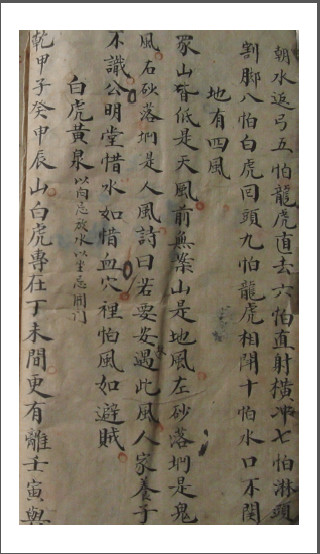 朝水返弓五怕龍虎直去六怕直射橫冲七怕淋頭
割脚八怕白虎回頭九怕龍虎相鬪十怕水口不関
地有四風
眾山皆低是天風前無案山是地風左砂落坍是鬼
風右砂落坍是人風詩曰若要安遇此風人家養子
不識公明堂惜水如惜血穴裡怕風如避賊
白虎黃泉以向忌放水以坐忌開门
乾甲子癸申辰山白虎專在丁未間更有離壬寅與